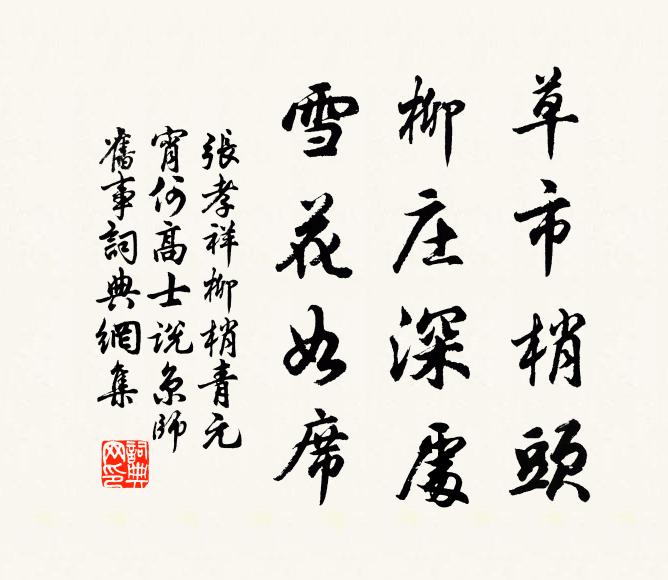 草市梢頭
柳庄深處
雪花如席
張孝祥柳梢青元
宵何高士说京師
舊事詞典網集
詞典網印